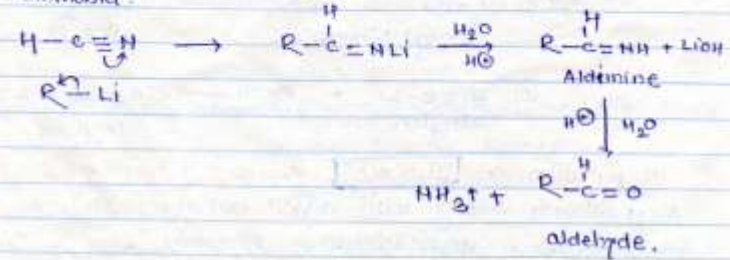 H
H-C≡N → R-C=NLi H2O H⊕ → R-C=NH + LiOH
R-Li
Aldimine
H⊕ ↓ H2O
NH3↑ + R-C=O
H
aldehyde.